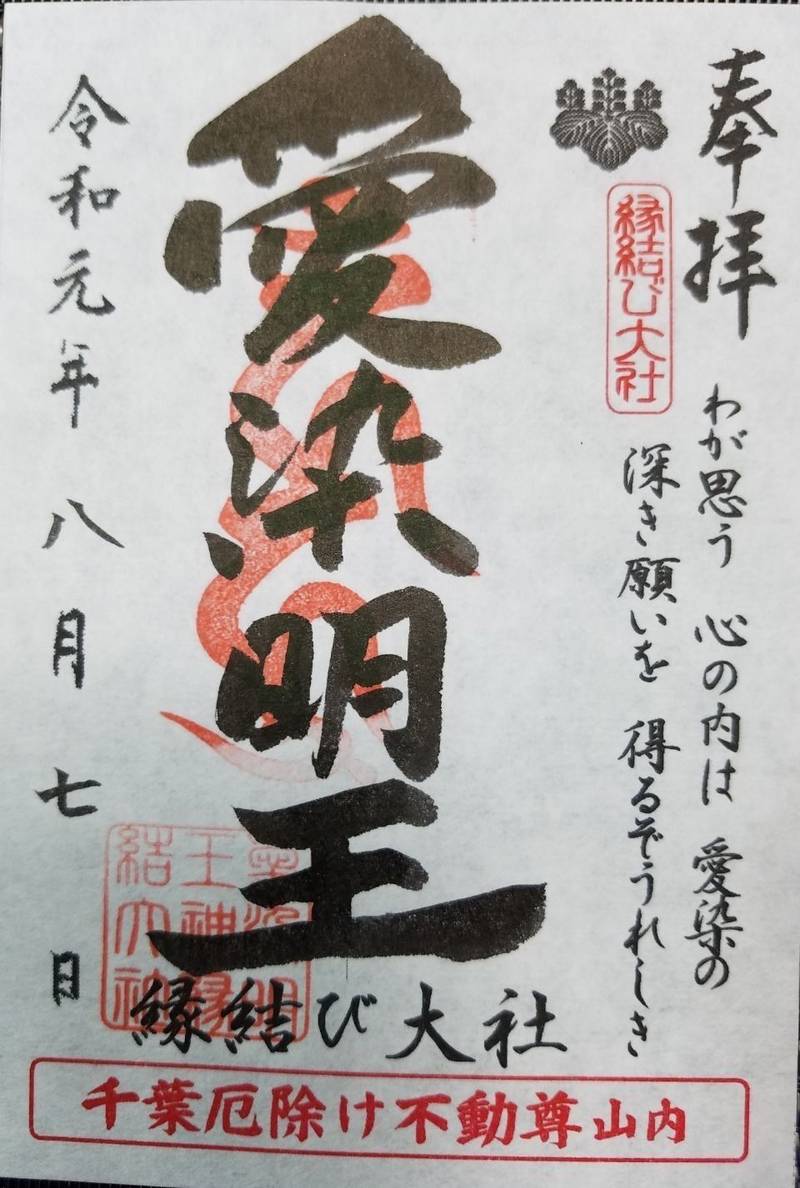 奉拝
縁結び大社
わが思う 心の内は 愛染の
深き願いを 得るぞうれしき
愛染明王
縁結び大社
令和元年 八月 七日
千葉厄除け不動尊山内